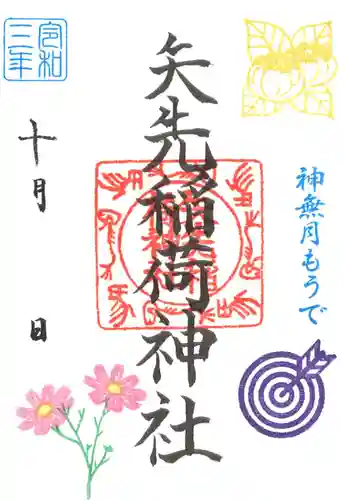 神無月もうで
矢先稲荷神社
令和
三年
十月
日